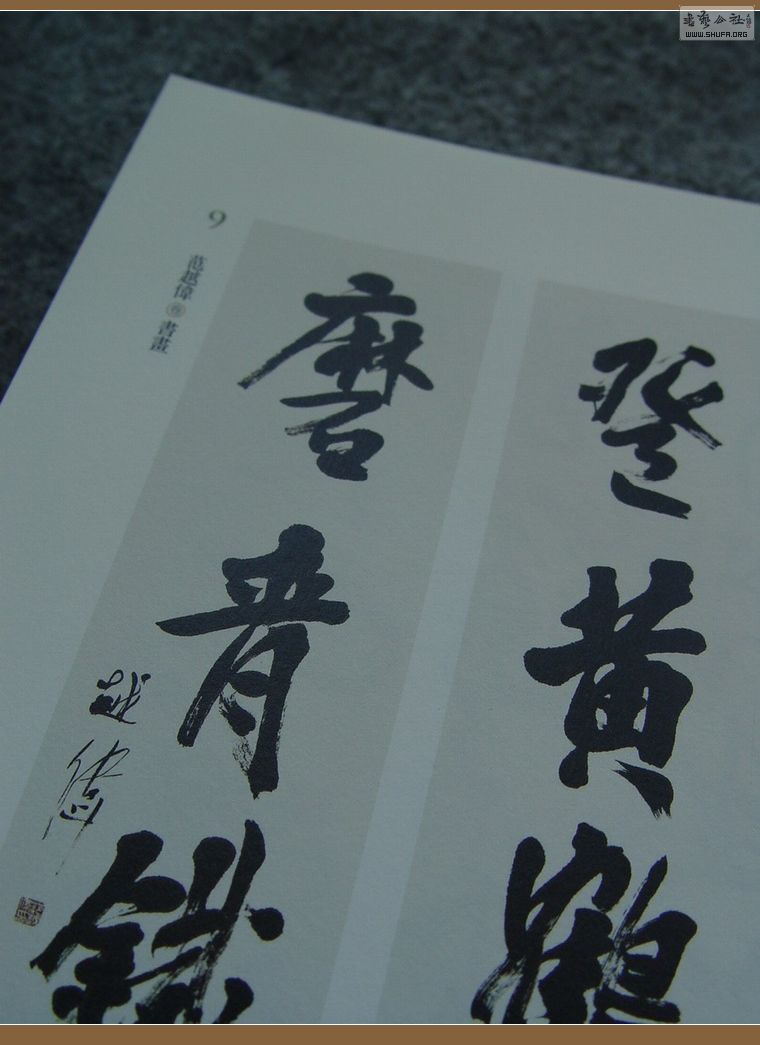 书艺公社
WWW.SHUFA.ORG
9
范越偉 卷 書畫
登黄鶴
磨青鐵
越偉